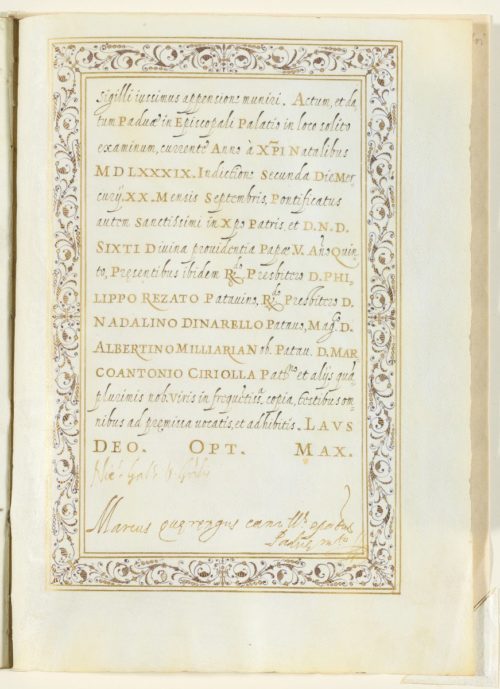 sigilli iussimus appensione muniri. Actum, et da
tum Paduæ in Episcopali Palatio in loco solito
examinum, currente Anno à Xp̄i Natalibus
MDLXXXIX. Indictione Secunda Die Mer
curij. XX. Mensis Septembris, Pontificatus
autem Sanctissimi in Xpo Patris, et D. N. D.
Sixti Divina providentia Papæ V. Año Quin
to, Præsentibus ibidem R.do Presbitero D. PHI
LIPPO REZATO Patauino, R.do Presbitero D.
NADALINO DINARELLO Patauo, Mag. D.
ALBERTINO MILLIARIA Nob. Patau. D. MAR
COANTONIO CIRIOLLA Pat.no et alijs quã
plurimis nob. viris in frequẽtiss.a copia, testibus om
nibus ad præmissa vocatis, et adhibitis. LAVS
DEO. OPT. MAX.
Marcus Querengus can.